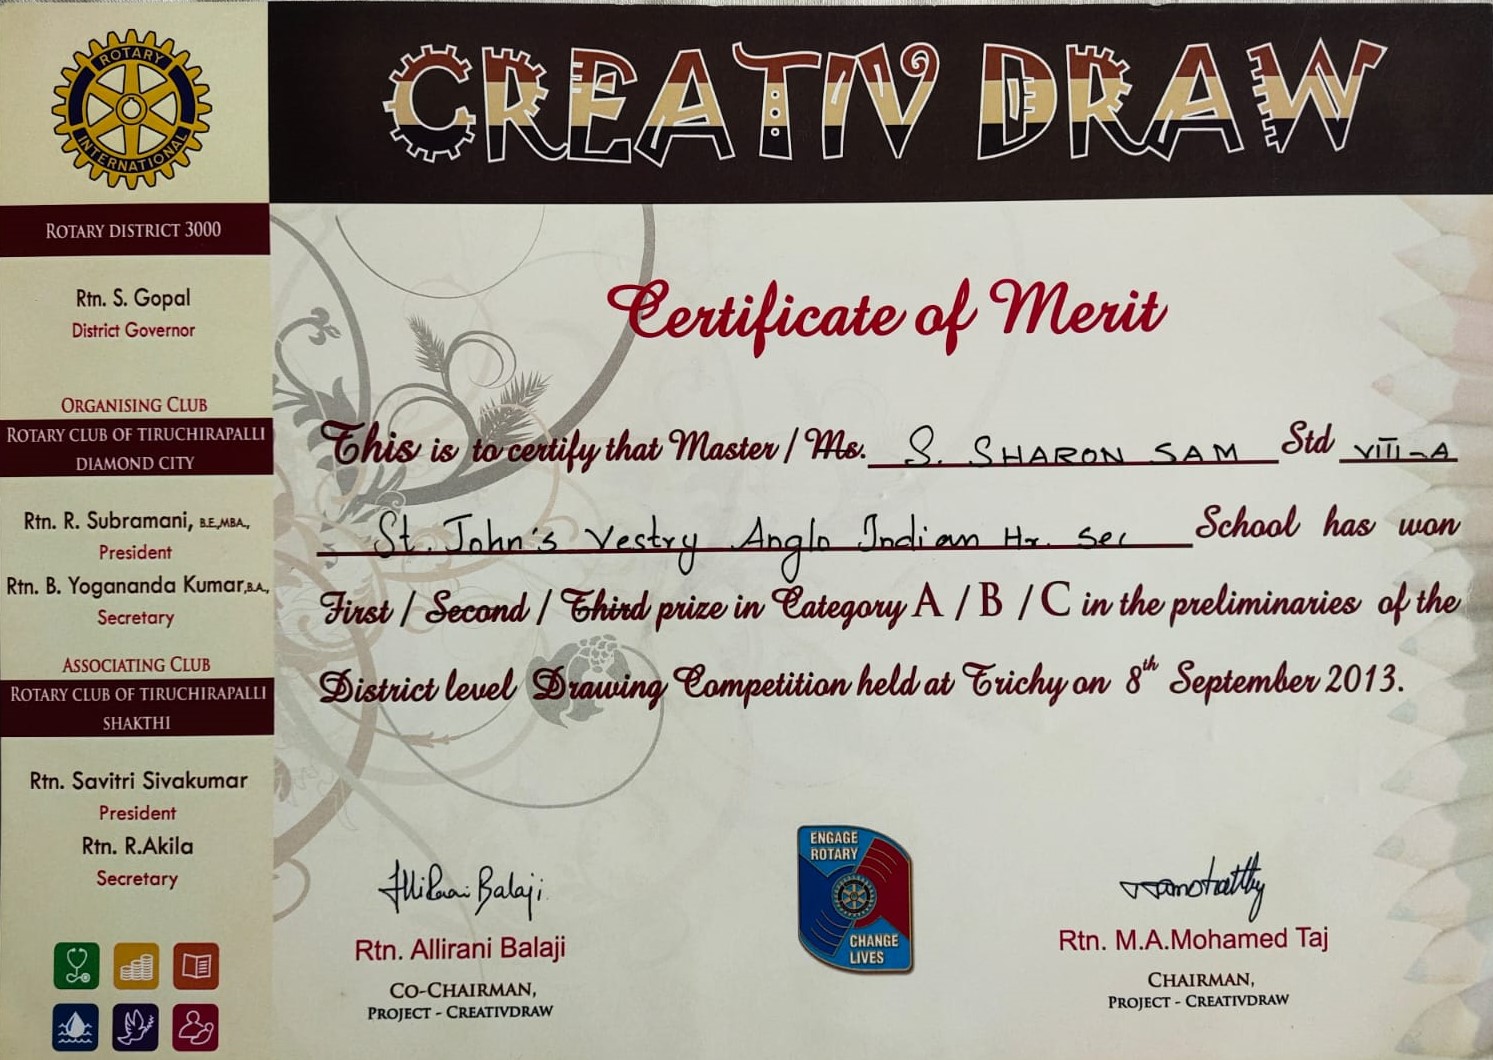 ROTARY
INTERNATIONAL
CREATIV DRAW
ROTARY DISTRICT 3000
Rtn. S. Gopal
District Governor
ORGANISING CLUB
ROTARY CLUB OF TIRUCHIRAPALLI
DIAMOND CITY
Rtn. R. Subramani, B.E.,MBA.,
President
Rtn. B. Yogananda Kumar,B.A.,
Secretary
ASSOCIATING CLUB
ROTARY CLUB OF TIRUCHIRAPALLI
SHAKTHI
Rtn. Savitri Sivakumar
President
Rtn. R.Akila
Secretary
Certificate of Merit
This is to certify that Master / Ms. S. SHARON SAM Std VIII-A
St. John's Vestry Anglo Indian Hr. Sec School has won
First / Second / Third prize in Category A / B / C in the preliminaries of the
District level Drawing Competition held at Trichy on 8th September 2013.
Allirani Balaji
Rtn. Allirani Balaji
CO-CHAIRMAN,
PROJECT - CREATIVDRAW
ENGAGE
ROTARY
CHANGE
LIVES
Rtn. M.A.Mohamed Taj
CHAIRMAN,
PROJECT - CREATIVDRAW